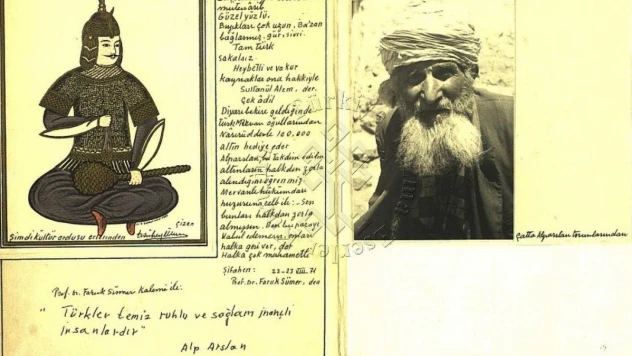 mutenâsib
Güzel yüzlü.
Bıyıkları çok uzun, Ba'zan
bağlarmış. gür, sivri
Tam türk
sakalsız
Heybetli ve vakur
kaynaklar ona hakkiyle
Sultanül Alem, der.
Çok âdil
Diyarıbekire geldiğinde
türk Mervan oğullarından
Nâsırüddevle 100.000
altın hediye eder
Alparslan, bu takdim edilen
altınların halkdan zorla
alındığını öğrenmiş
Mervanlı hükümdarı
huzuruna celb ile: - Sen
bunları halkdan zorla
almışsın. Ben bu parayı
Kabul edemem. onları
halka geri ver, der
Halka çok mahamette
Şifahen: 22-23 VIII. 71
Prof. Dr. Faruk Sümer, den
Çizen
Şimdi kültür ordusu erlerinden
Prof. Dr. Faruk Sümer Kalemi ile:
"Türkler temiz ruhlu ve sağlam inançlı
İnsanlardır"
Alp Arslan
Çatta Alparslan torunlarından